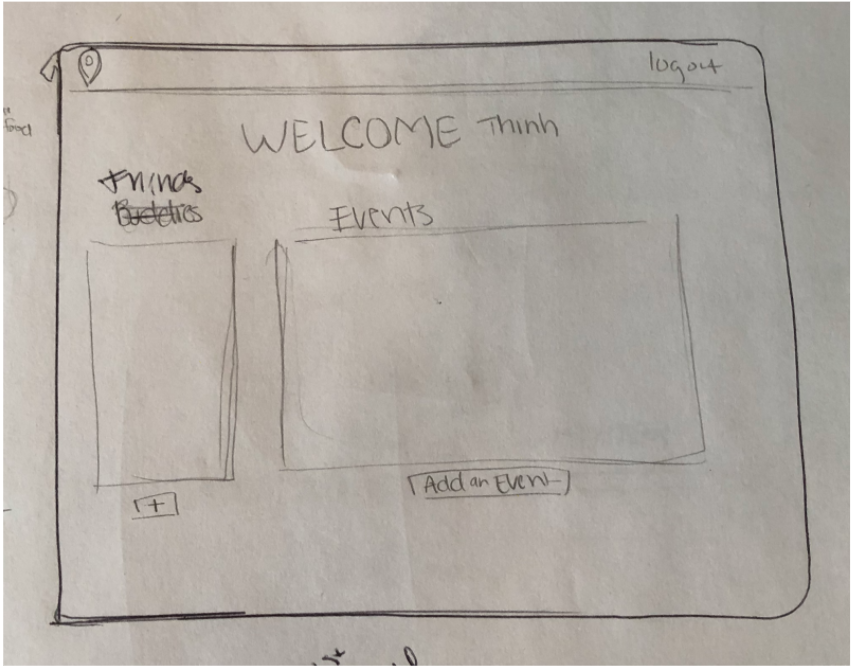 logout
WELCOME Thinh
Frinds
Buddies
Events
+
Add an Event
food